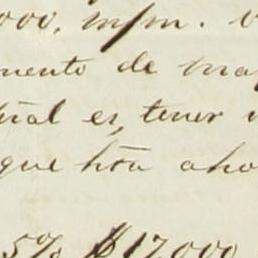 000, m/m.
mento de
es, tener
que hta aho
5% $17,000